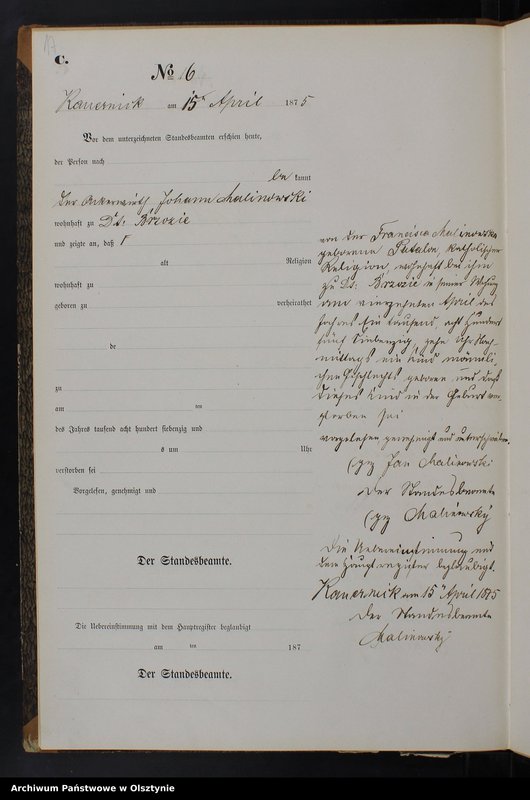 C.
No 16
Kauernick am 15ten April 1875
Vor dem unterzeichneten Standesbeamten erschien heute,
der Person nach
be kannt
der Ackerwirth Johann Malinowski
wohnhaft zu Dt: Brzozie
und zeigte an, daß
alt Religion
wohnhaft zu
geboren zu verheirathet
de
zu
am ten
des Jahres tausend acht hundert siebenzig und
s um Uhr
verstorben sei
Vorgelesen, genehmigt und
Der Standesbeamte.
Die Uebereinstimmung mit dem Hauptregister beglaubigt
am ten 187
Der Standesbeamte.
von der Francisca Malinowska
geborene katholischer
Religion, wohnhaft bei ihm
zu Dt: Brzozie in seiner Wohnung
am vierzehnten April des
Jahres Ein tausend, acht hundert
fünf Siebenzig, zehn Uhr Nach-
mittags ein Kind männli-
chen Geschlechts geboren und daß
dieses Kind in der Geburt ver-
storben sei
vorgelesen genehmigt und unterschrieben.
(gez Jan Malinowski
Der Standesbeamte
(gez Malinowsky
Die Uebereinstimmung mit
dem Hauptregister beglaubigt.
Kauernick am 15ten April 1875
Der Standesbeamte
Malinowsky
Archiwum Państwowe w Olsztynie